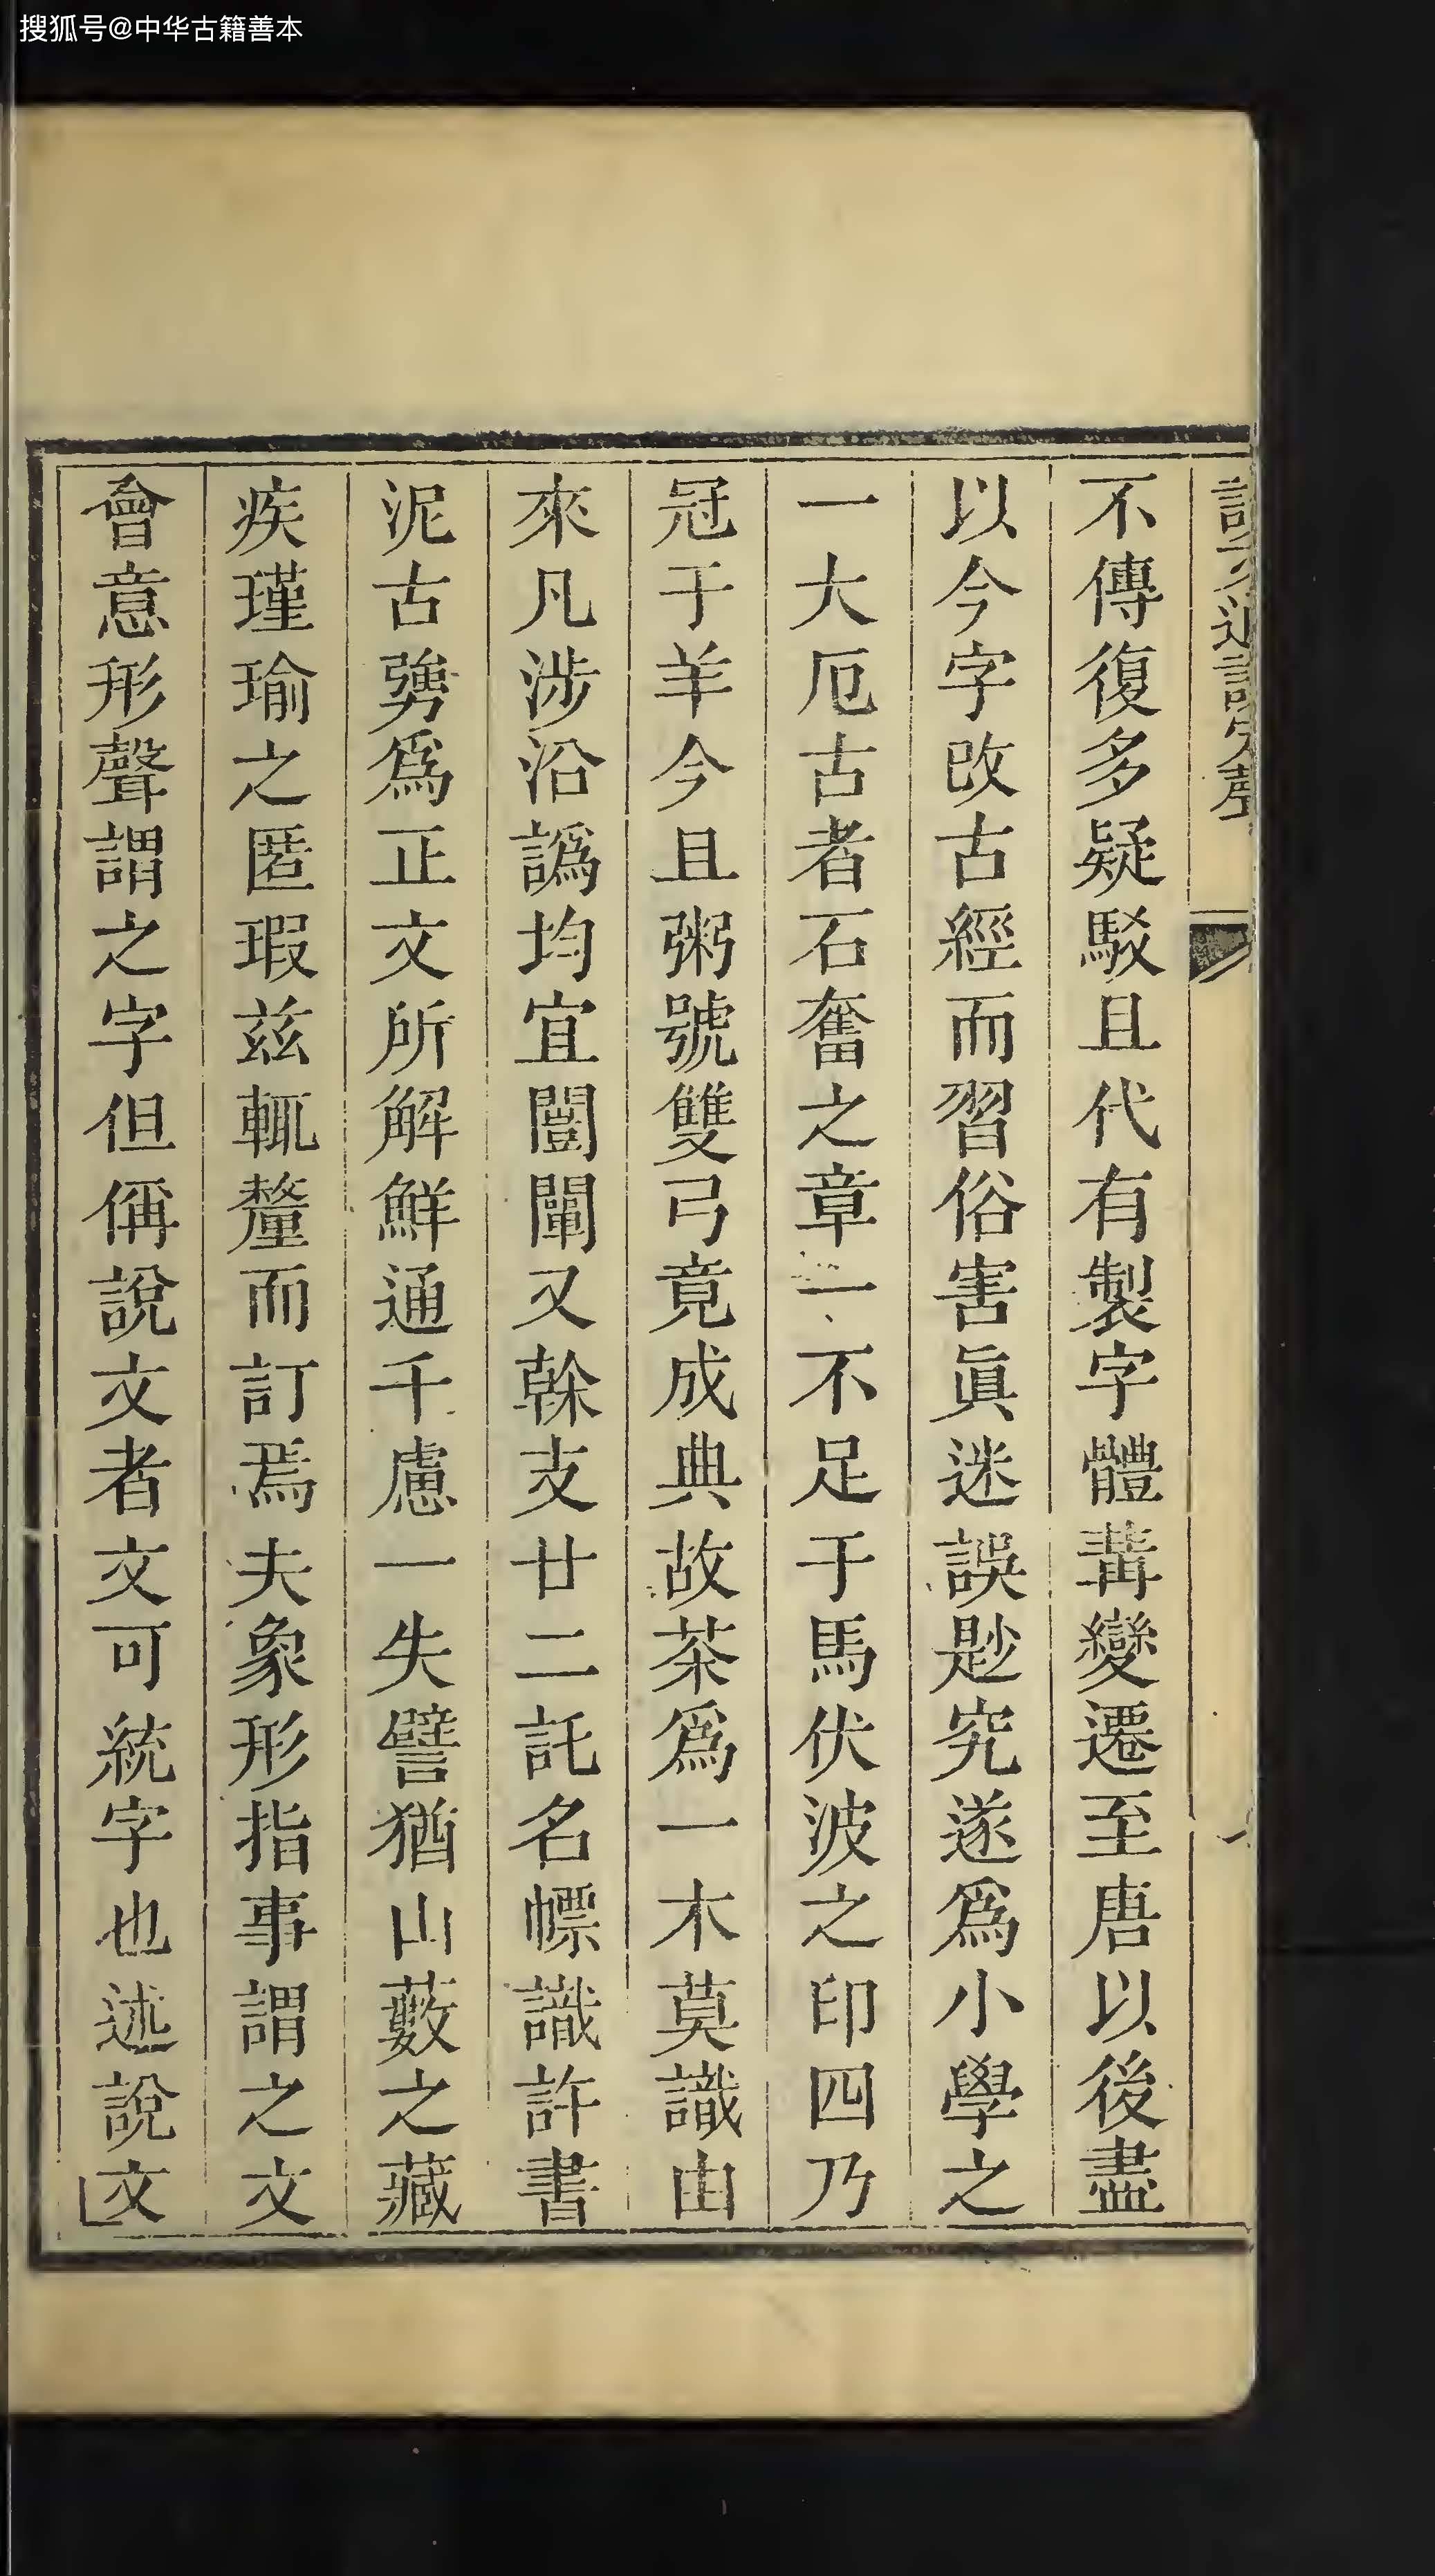 搜狐号@中华古籍善本
不傳復多疑駁且代有製字體冓變遷至唐以後盡
以今字改古經而習俗害眞迷誤尟究遂爲小學之
一大厄古者石奮之章一不足于馬伏波之印四乃
冠于羊今且粥號雙弓竟成典故茶爲一木莫識由
來凡涉沿譌均宜闓闡又榦支廿二託名幖識許書
泥古彊爲正文所解鮮通千慮一失譬猶山藪之藏
疾瑾瑜之匿瑕兹輒釐而訂焉夫象形指事謂之文
會意形聲謂之字但偁說文者文可統字也述說文